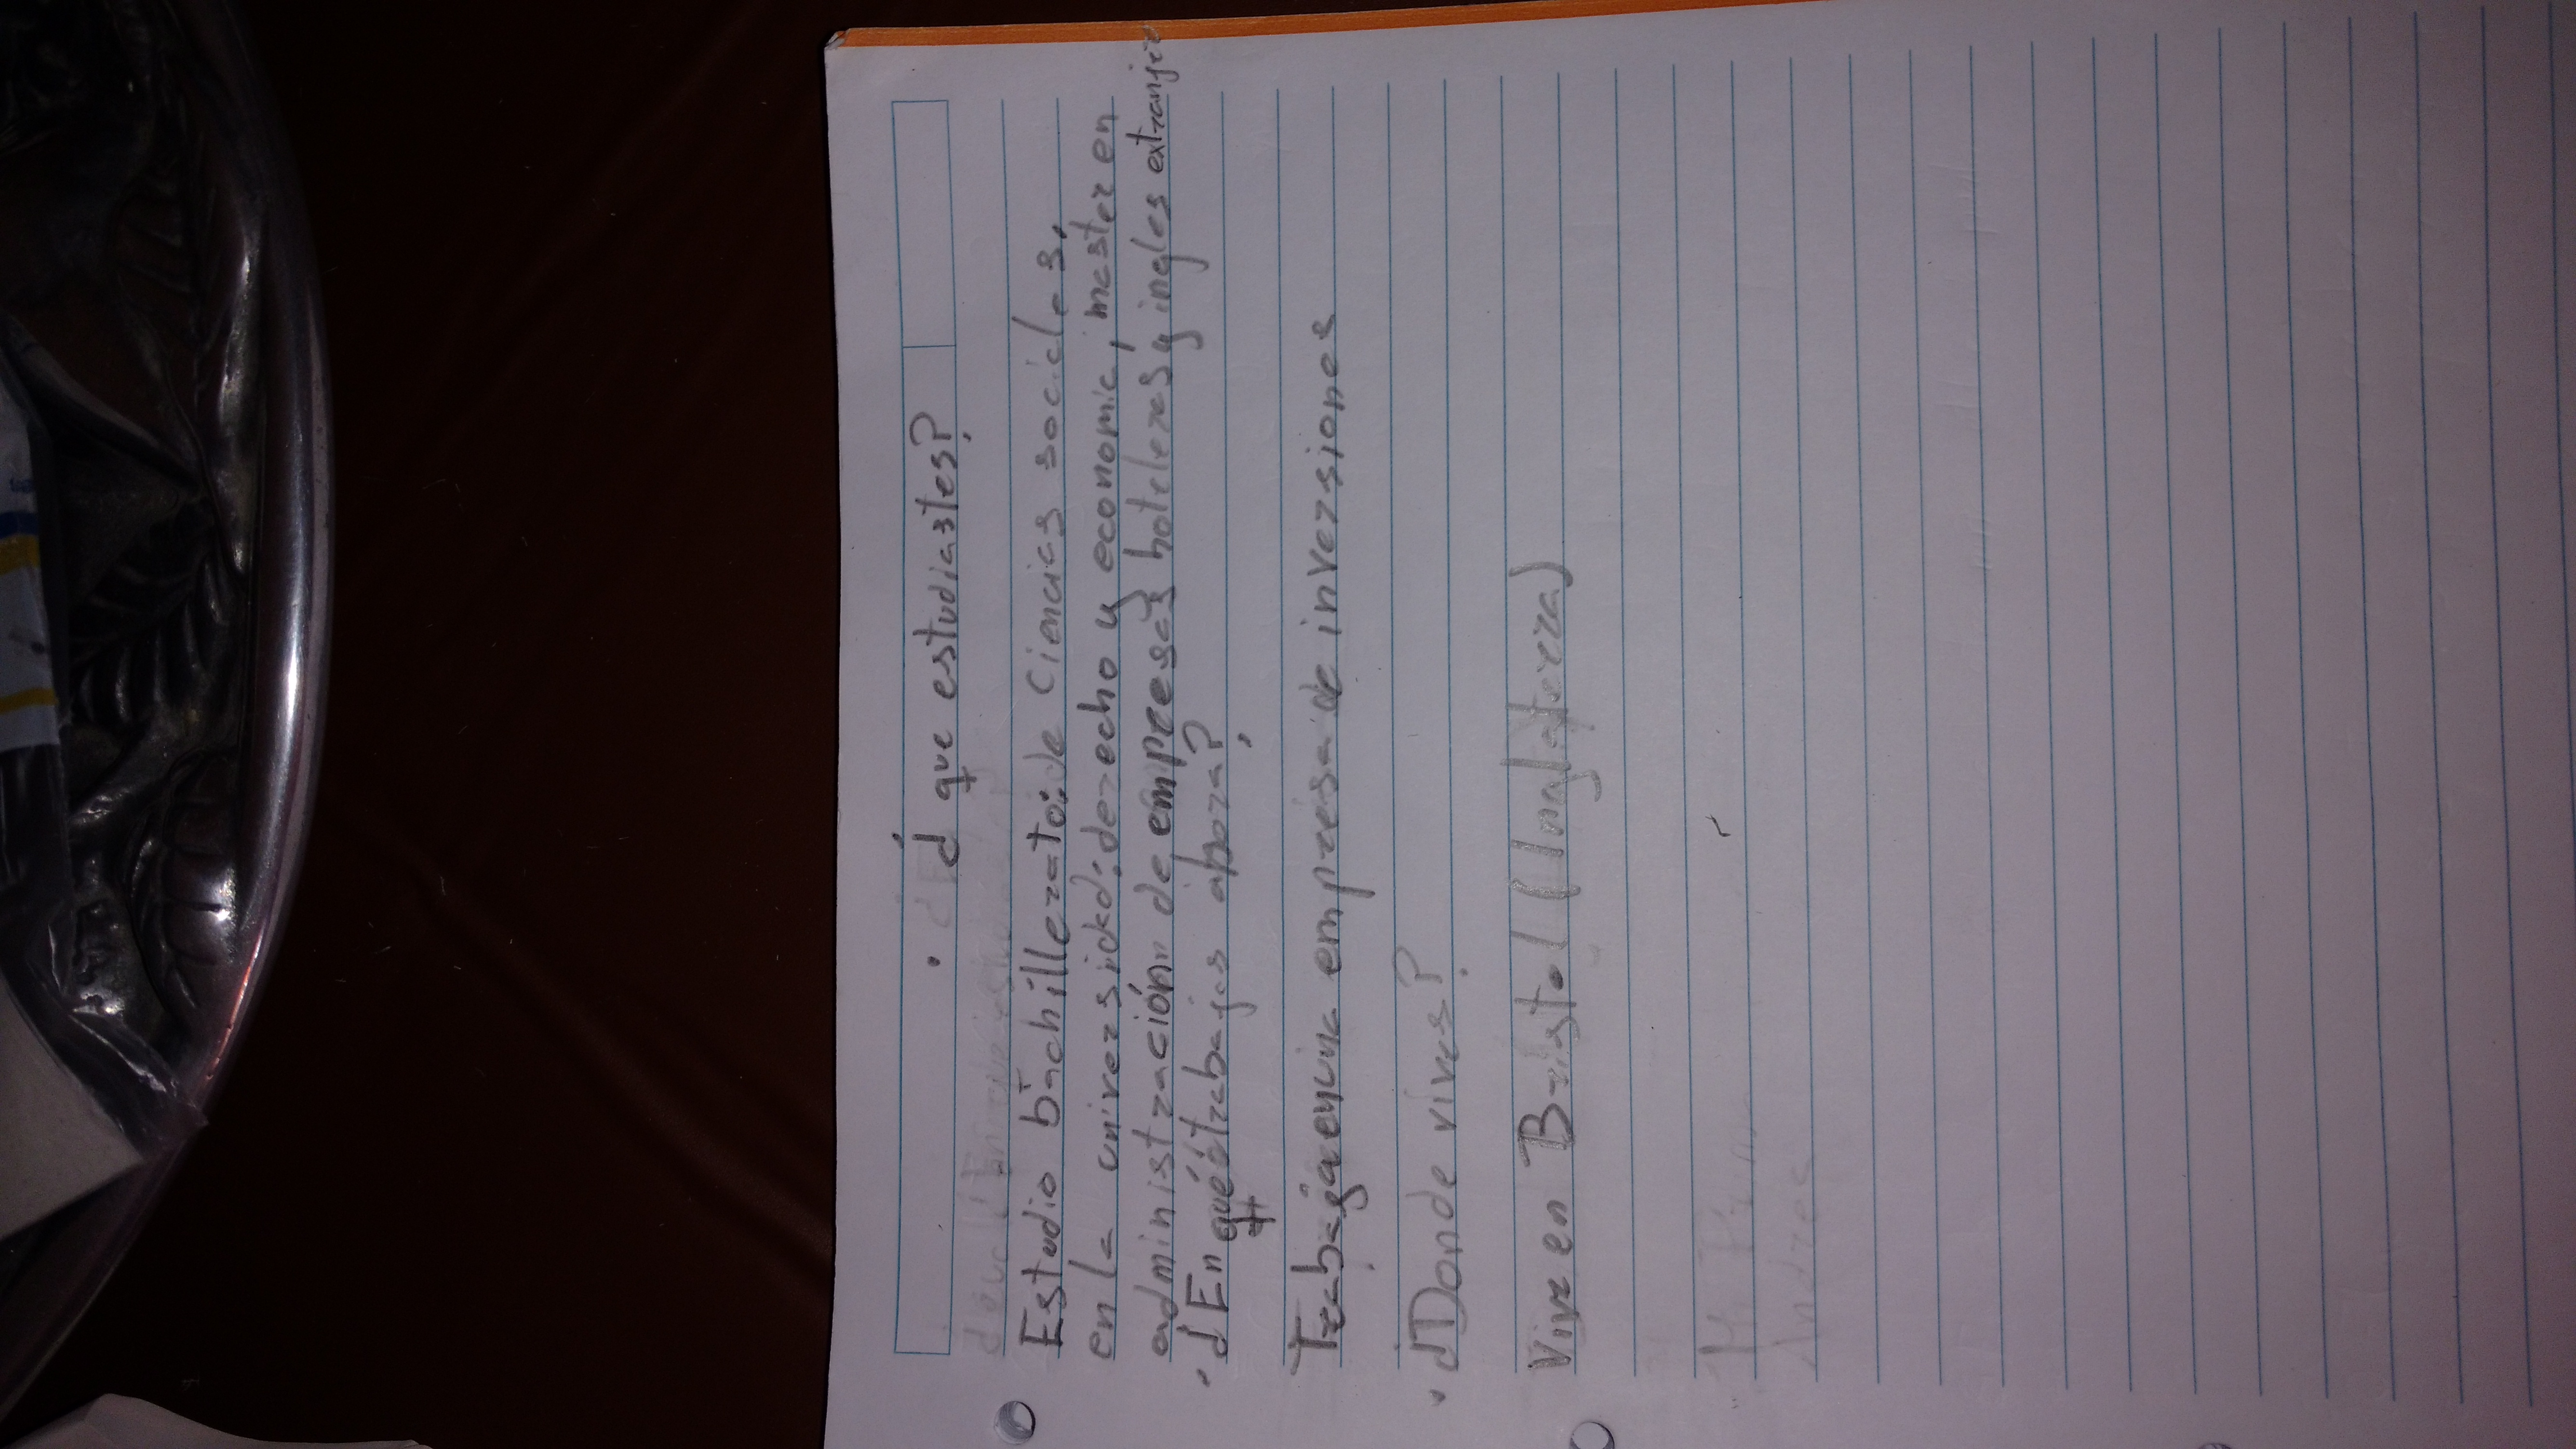 · ¿ que estudiastes?
Estudio bachillerato: de Ciencias sociales,
en la universidad: derecho y economia, master en
administración de empresas hoteleras y ingles extranjer
· ¿En qué trabajas ahora?
Trabaja en una empresa de inversiones
· ¿Donde vives?
Vive en Bristol (Inglaterra)
Andres